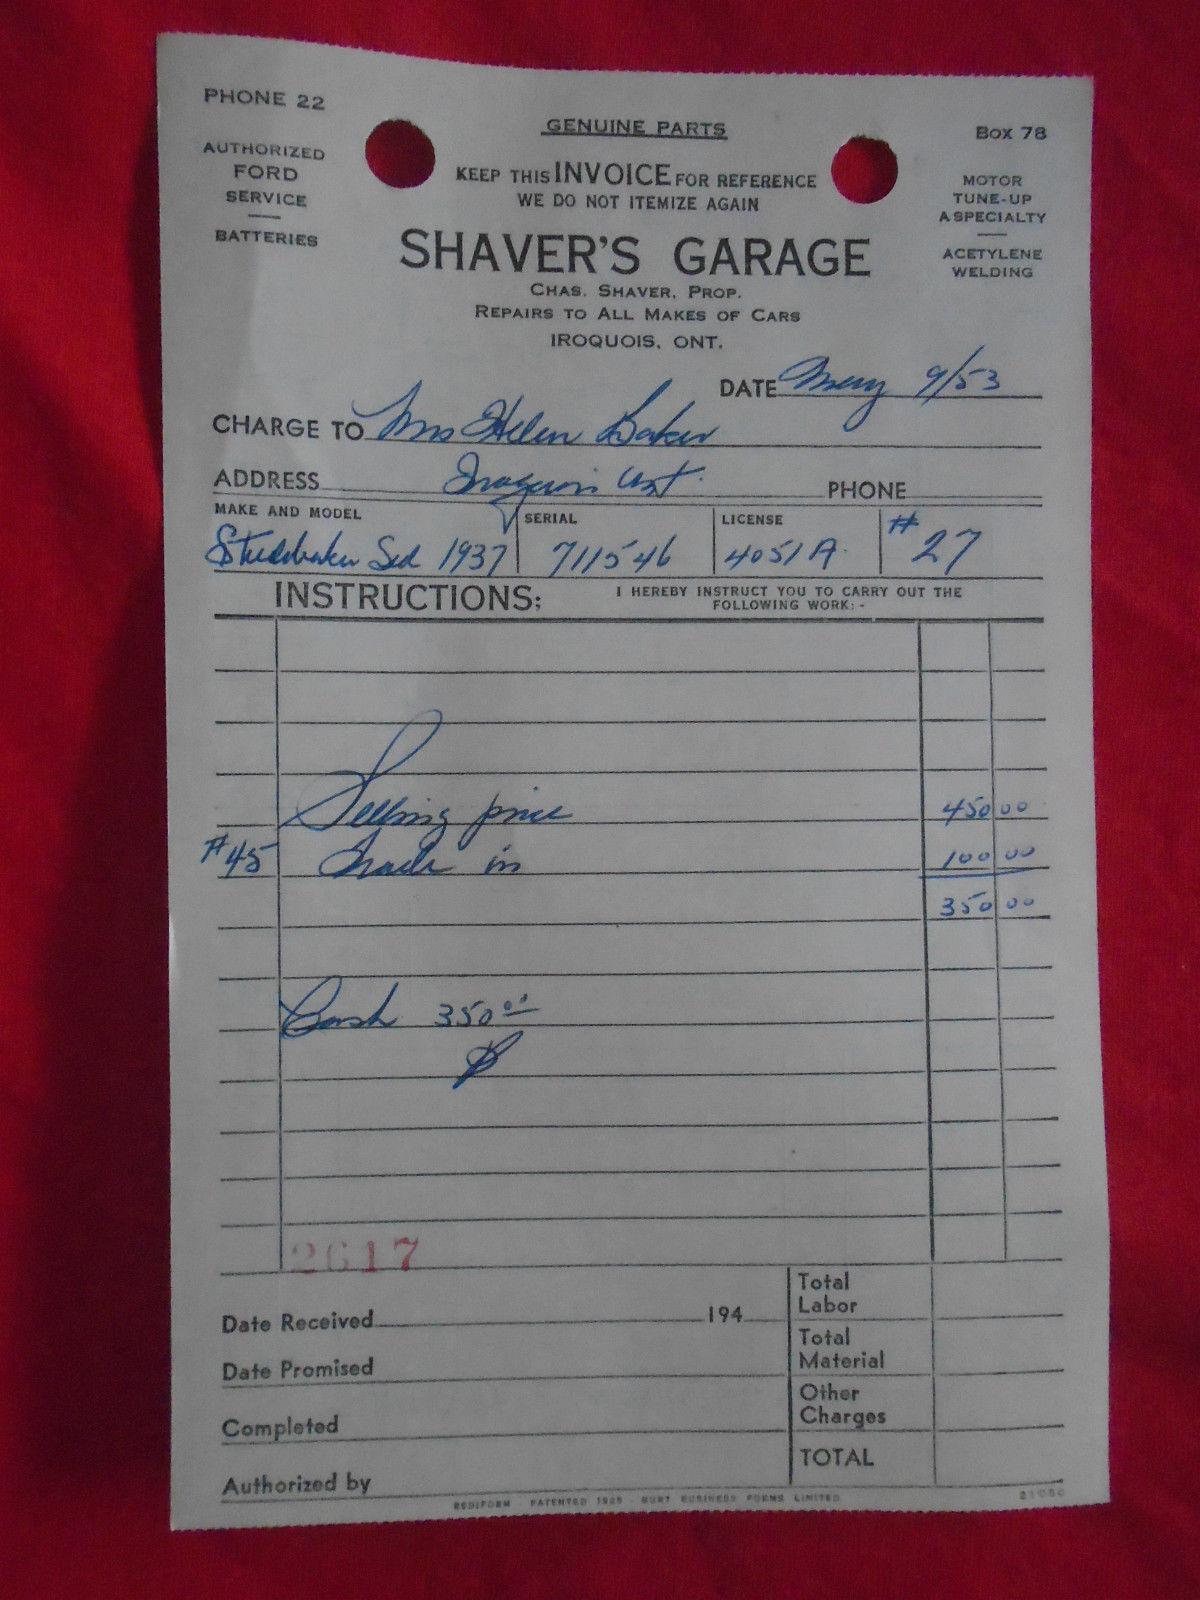 PHONE 22
GENUINE PARTS
BOX 78
AUTHORIZED
FORD
SERVICE
BATTERIES
KEEP THIS INVOICE FOR REFERENCE
WE DO NOT ITEMIZE AGAIN
MOTOR
TUNE-UP
A SPECIALTY
ACETYLENE
WELDING
SHAVER'S GARAGE
CHAS. SHAVER, PROP.
REPAIRS TO ALL MAKES OF CARS
IROQUOIS, ONT.
DATE May 9/53
CHARGE TO Mrs Helen Baker
ADDRESS Iroquois Ont. PHONE
MAKE AND MODEL SERIAL LICENSE
Studebaker Sed 1937 711546 4051A. #27
INSTRUCTIONS: I HEREBY INSTRUCT YOU TO CARRY OUT THE
FOLLOWING WORK:-
Selling price 450 00
#45 Trade in 100 00
350 00
Cash 350 00
2617
Date Received 194
Date Promised
Completed
Authorized by
Total
Labor
Total
Material
Other
Charges
TOTAL
REDIFORM PATENTED 1925 BURT BUSINESS FORMS LIMITED